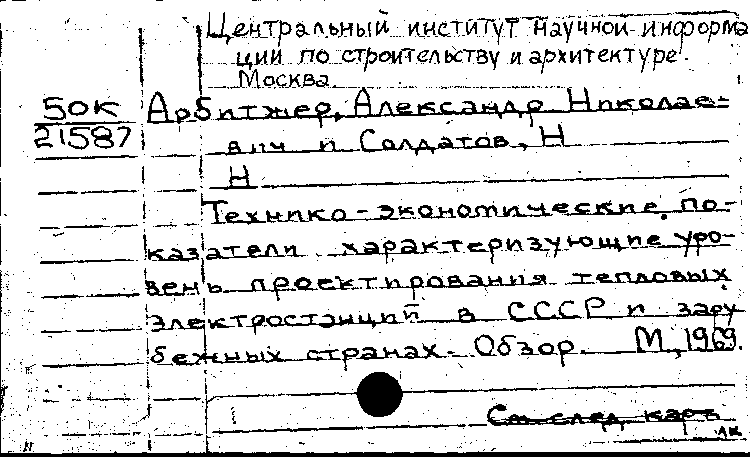 Центральный институт научной информа
ции по строительству и архитектуре.
Москва
50К
21587
Арбитжер, Александр Николае-
вич и Солдатов, Н
Н
Технико-экономические по-
казатели характеризующие уро-
вень проектирования тепловых
электростанций в СССР и зару
бежных странах. Обзор. М, 1969.
См след карт